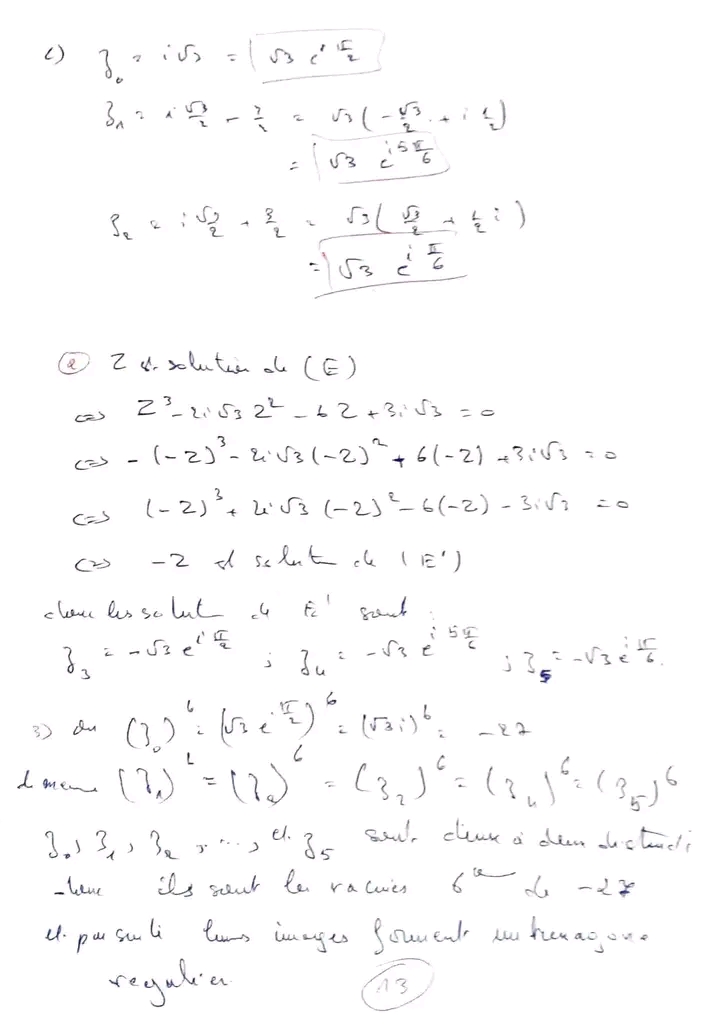 c) z₀ = i√3 = √3 e^{iπ/2}
z₁ = i √3/2 - 3/2 = √3 (-√3/2 + i 1/2)
= √3 e^{i5π/6}
z₂ = i √3/2 + 3/2 = √3 (√3/2 + 1/2 i)
= √3 e^{iπ/6}
② Z est solution de (E)
⇔ Z³ - 2i√3 Z² - 6Z + 3i√3 = 0
⇔ -(-Z)³ - 2i√3 (-Z)² + 6(-Z) + 3i√3 = 0
⇔ (-Z)³ + 2i√3 (-Z)² - 6(-Z) - 3i√3 = 0
⇔ -Z est solut de (E')
donc les solut de E' sont :
z₃ = -√3 e^{iπ/2} ; z₄ = -√3 e^{i5π/6} ; z₅ = -√3 e^{iπ/6}.
3) on (z₀)⁶ = (√3 e^{iπ/2})⁶ = (√3i)⁶ = -27
de meme (z₁)⁶ = (z₂)⁶ = (z₃)⁶ = (z₄)⁶ = (z₅)⁶
z₀, z₁, z₂, ..., et z₅ sont deux à deux distincts
donc ils sont les racines 6^{e} de -27
et par suite leurs images forment un hexagone
regulier.
13